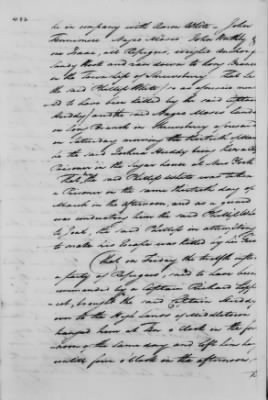 he in company with Aaron White – John
Fennimore Negro Moses John Worthly &
one Isaac, all Refugees, weighd Anchor
Sandy Hook and came down to long
in the Township of Shrewsbury That he
the said Phillip White / so as aforesaid
ed to have been killed by the said Captain
Huddy / and the said Negro Moses landed
on Long Branch in Shrewsbury aforesaid
on Saturday evening the thirtieth of March
he the said Joshua Huddy being
Prisoner in the Sugar house at New York
That the said Phillip White was taken
a Prisoner on the same thirtieth day of
March in the afternoon, and as a guard
was conducting him the said Phillip White
to Goal, the said Phillip in attempting
to make his Escape was killed by his
That on Friday the twelfth
a party of Refugees, said to have been
commanded by a Captain Richard Lipp-
cot, brought the said Captain Huddy
over to the High lands of Middletown
hanged him at Ten o Clock in the fore
noon of the same day and left him
until four o Clock in the afternoon,